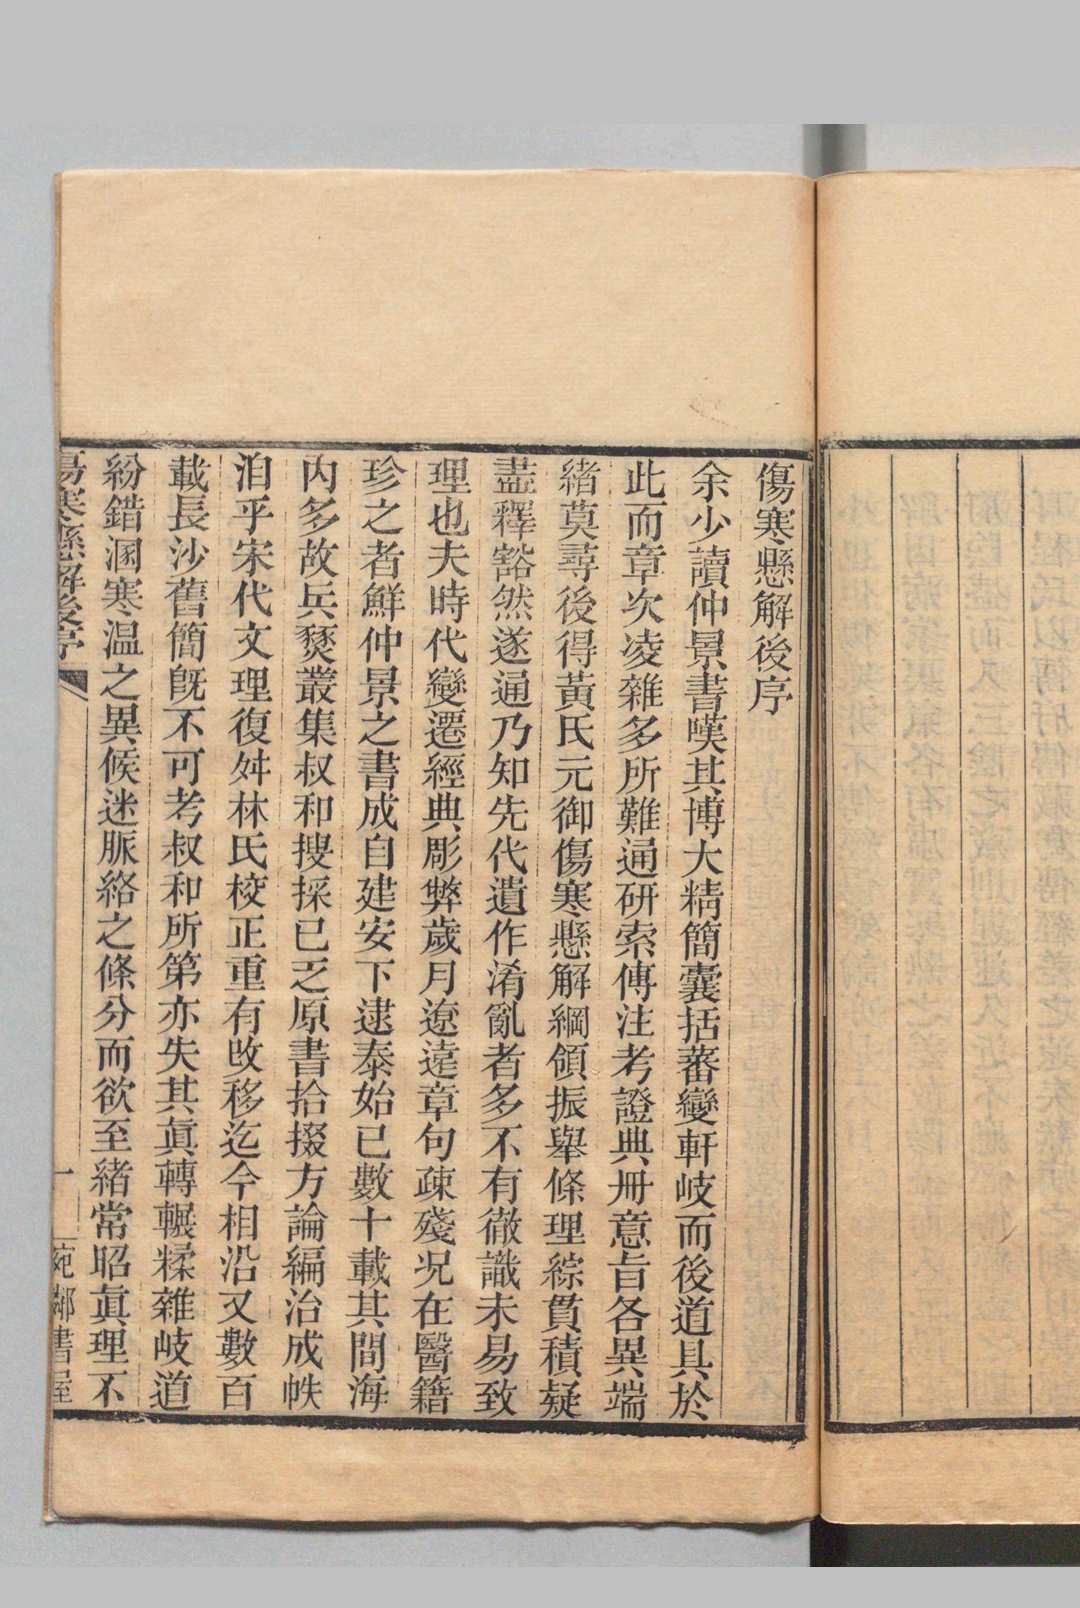 傷寒懸解後序
余少讀仲景書嘆其博大精簡囊括蕃變軒岐而後道具於
此而章次凌雜多所難通研索傳注考證典冊意旨各異端
緒莫尋後得黃氏元御傷寒懸解綱領振舉條理綜貫積疑
盡釋豁然遂通乃知先代遺作淆亂者多不有徹識未易致
理也夫時代變遷經典彫弊歲月遼遠章句疎殘況在醫籍
珍之者鮮仲景之書成自建安下逮泰始已數十載其間海
內多故兵燹叢集叔和搜採已乏原書拾掇方論編治成帙
洎乎宋代文理復舛林氏校正重有改移迄今相沿又數百
載長沙舊簡旣不可考叔和所第亦失其眞轉輾糅雜岐道
紛錯溷寒温之異候迷脈絡之條分而欲至緒常昭眞理不
傷寒懸解後序
一
宛鄰書屋